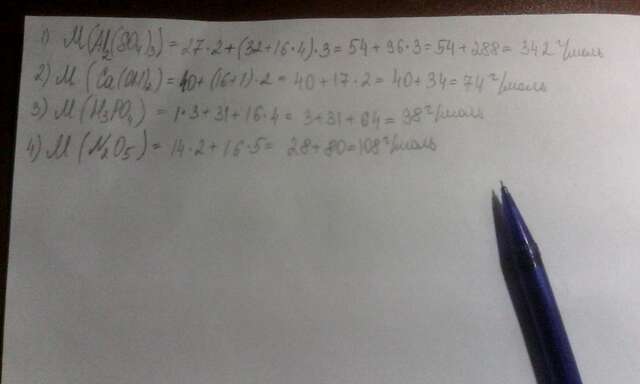 1) M(Al₂(SO₄)₃) = 27·2+(32+16·4)·3 = 54+96·3 = 54+288 = 342 г/моль
2) M (Ca(OH)₂) = 40+(16+1)·2 = 40+17·2 = 40+34 = 74 г/моль
3) M (H₃PO₄) = 1·3+31+16·4 = 3+31+64 = 98 г/моль
4) M (N₂O₅) = 14·2+16·5 = 28+80=108 г/моль